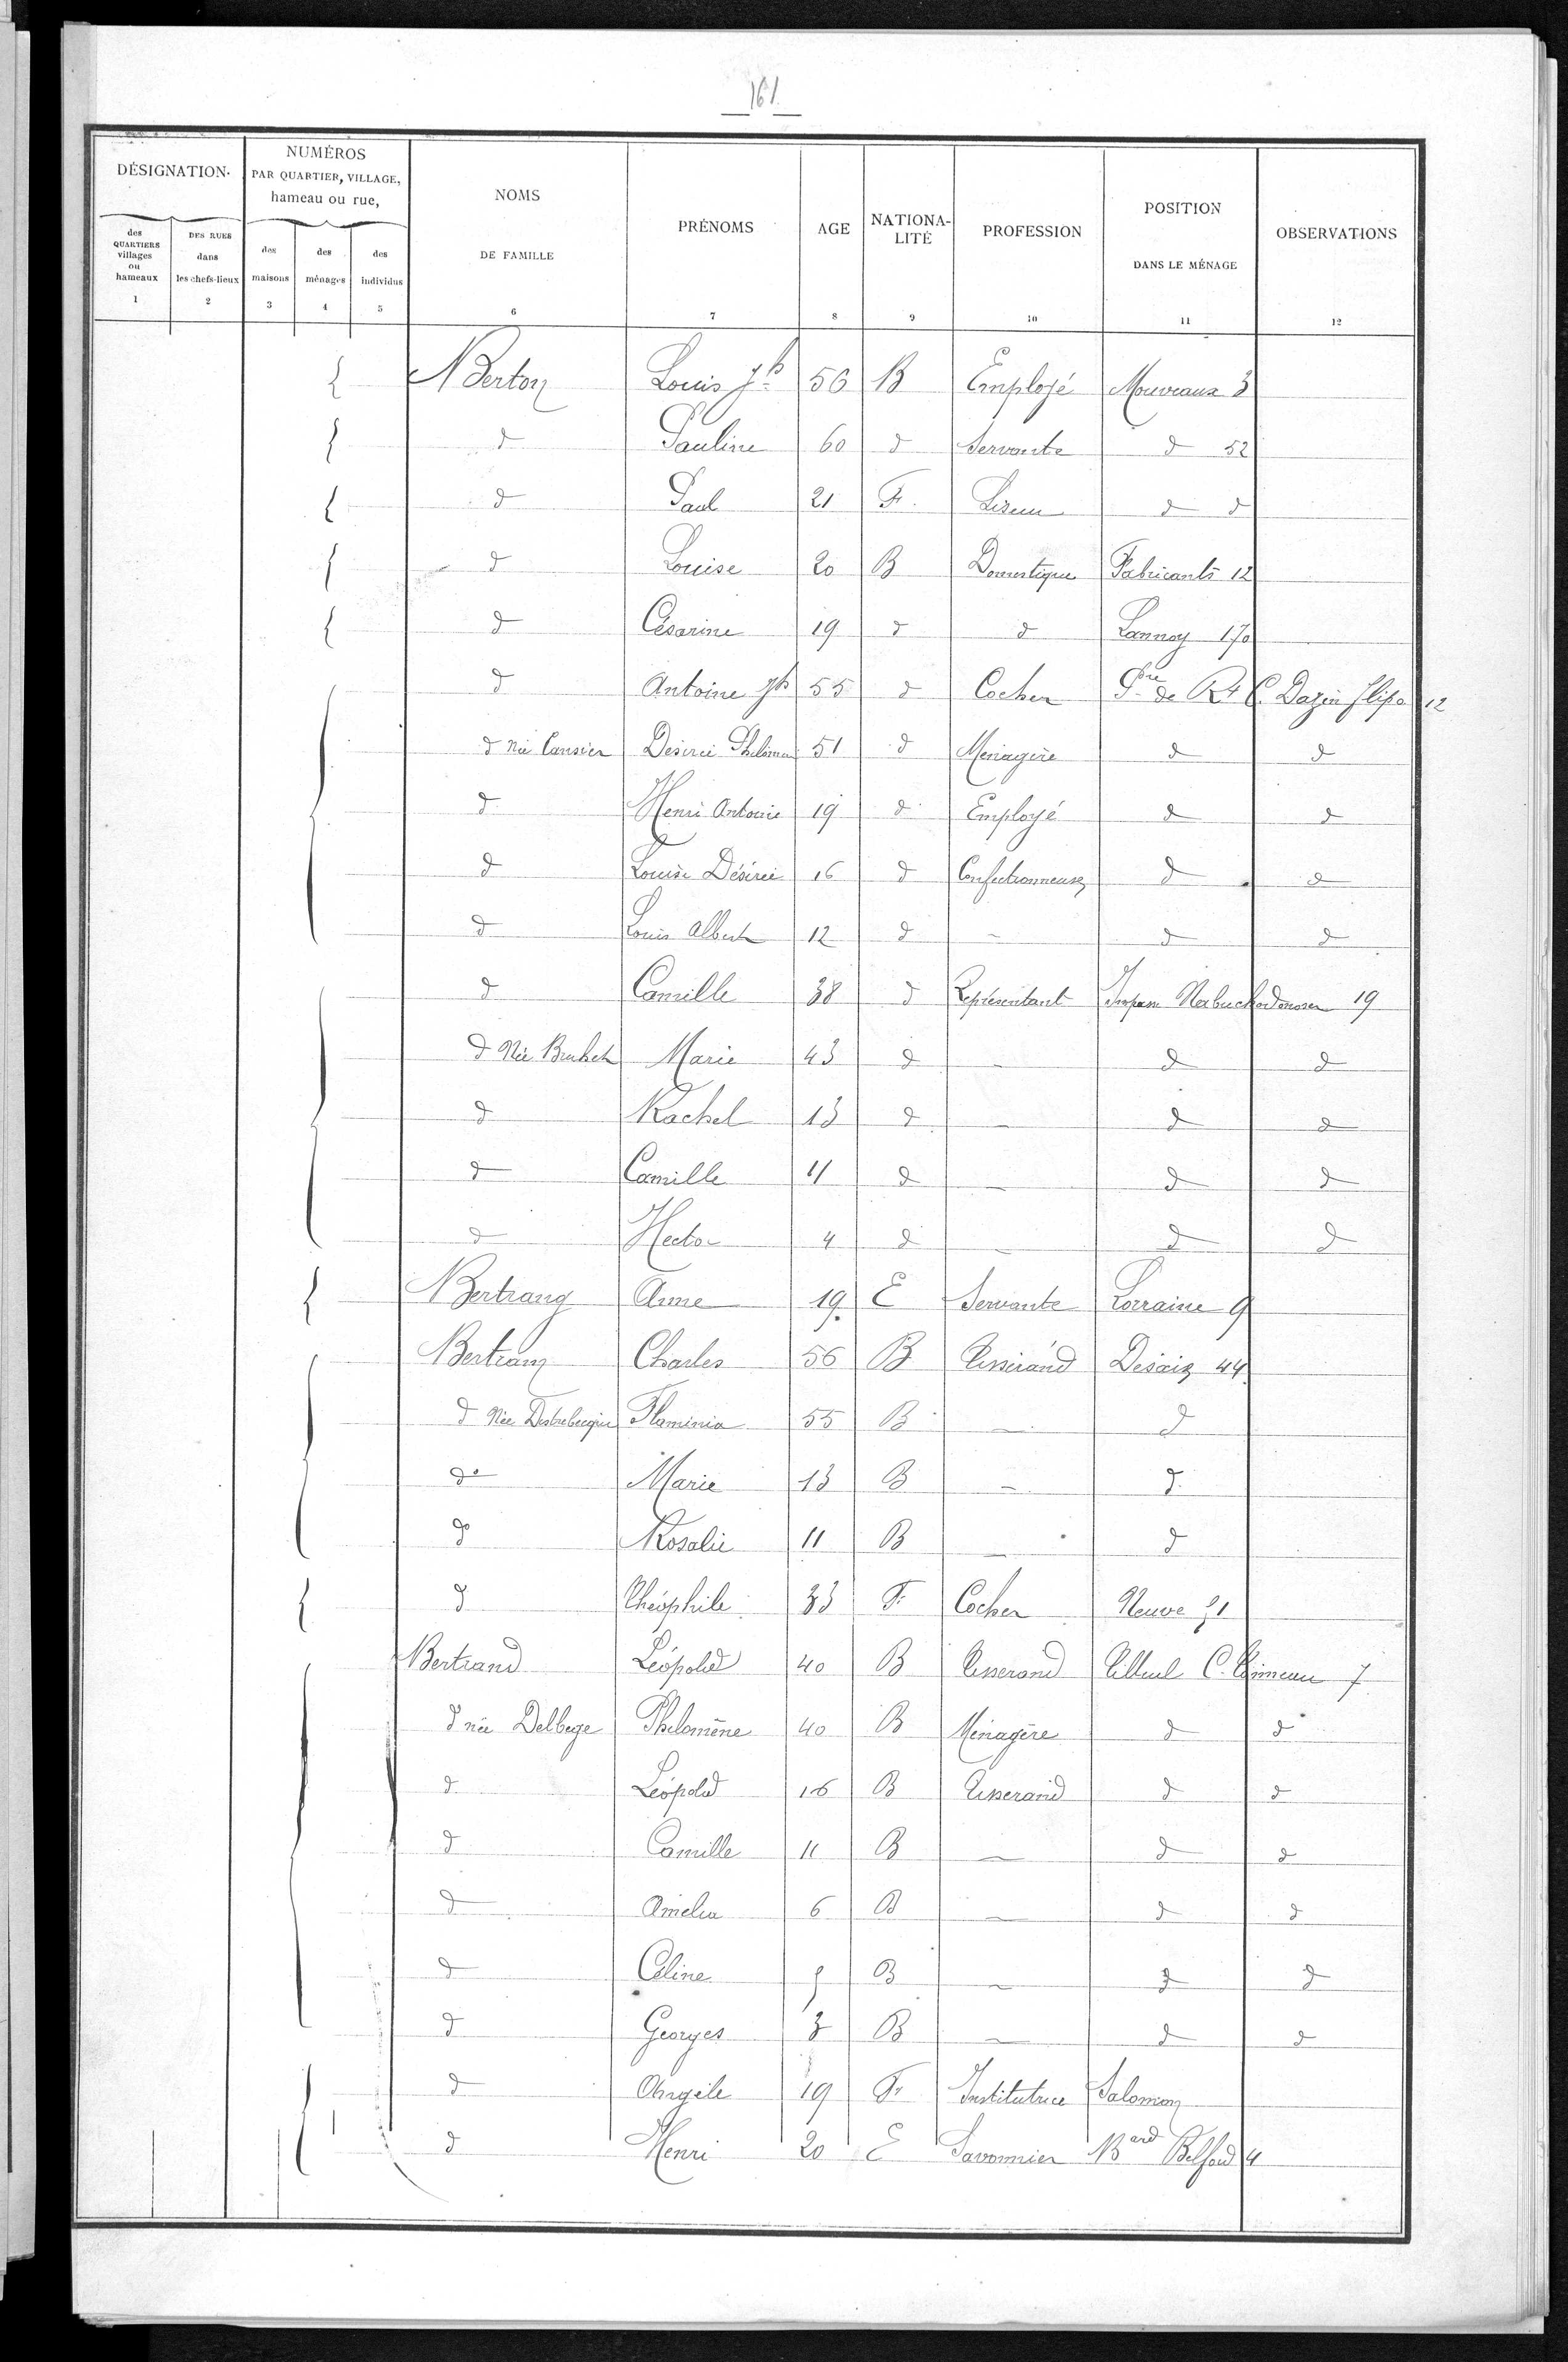 161
DÉSIGNATION
NUMÉROS PAR QUARTIER, VILLAGE, hameau ou rue,
NOMS DE FAMILLE
PRÉNOMS
AGE
NATIONA-LITÉ
PROFESSION
POSITION DANS LE MÉNAGE
OBSERVATIONS
des QUARTIERS villages ou hameaux
DES RUES dans les chefs-lieux
des maisons
des ménages
des individus
1 2 3 4 5 6 7 8 9 10 11 12
Berton Louis Jh 56 B Employé Mouveaux 3
d Pauline 60 d Servante d 52
d Paul 21 F. d d
d Louise 20 B Domestique Fabricants 12
d Césarine 19 d d Lannoy 170
d Antoine Jh 55 d Cocher Gre de Rt C. Dazin flipo 12
d née Desirée Philomène 51 d Menagère d d
d Henri Antoine 19 d Employé d d
d Louise Désirée 16 d Confectionneuse d d
d Louis Albert 12 d - d d
d Camille 38 d Représentant Nabuchodonosor 19
d Née Marie 43 d - d d
d Rachel 13 d - d d
d Camille 11 d - d d
d Hector 4 d - d d
Bertrang Anne 19. E Servante Lorraine 9
Bertram Charles 56 B Tisserand Desaix 44
d Née Destrebecque Flaminia 55 B - d
do Marie 13 B - d
do Rosalie 11 B - d
d Théophile 33 F. Cocher Neuve 31
Bertrand Léopold 40 B Tisserand Tilleul C. 7
d née Delbege Philomène 40 B Ménagère d d
d Léopold 16 B Tisserand d d
d Camille 11 B - d d
d Amelia 6 B - d d
d Céline B - d d
d Georges 3 B - d d
d Angèle 19 F. Institutrice Salomon
d Henri 20 E Savonnier Bard Belfort 4